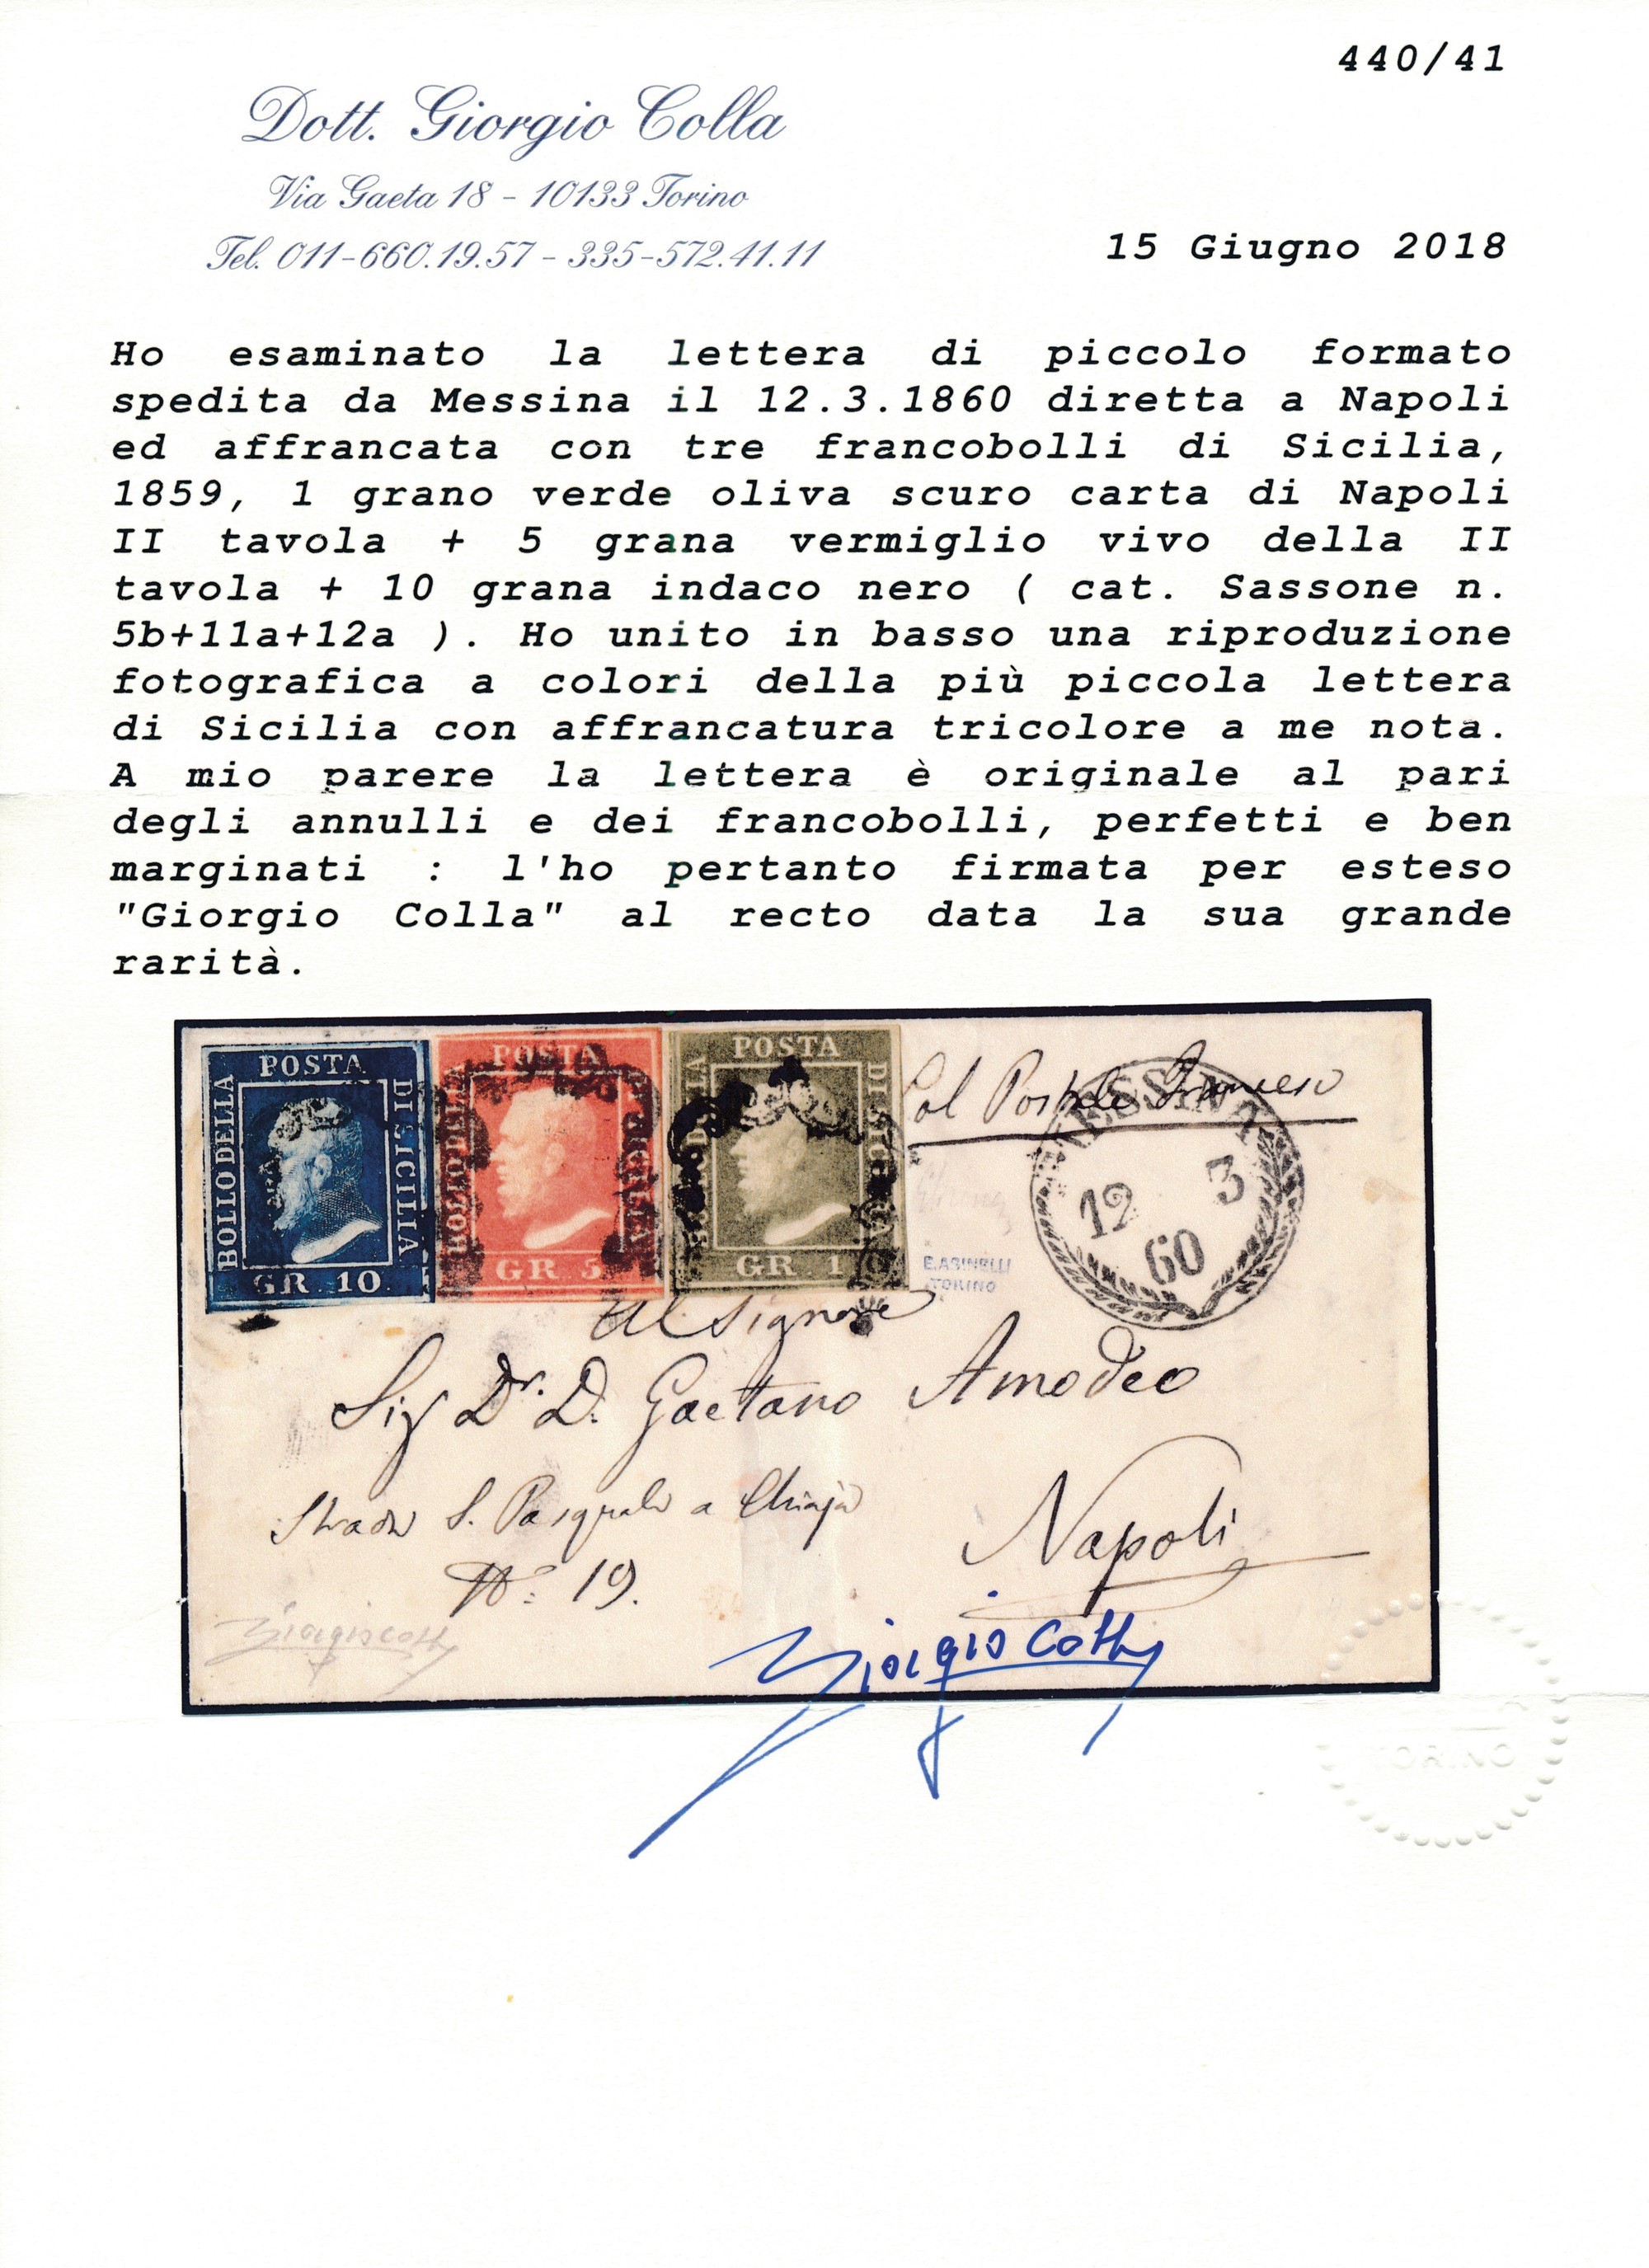 440/41
Dott. Giorgio Colla
Via Gaeta 18 - 10133 Torino
Tel. 011-660.19.57 - 335-572.41.11
15 Giugno 2018
Ho esaminato la lettera di piccolo formato
spedita da Messina il 12.3.1860 diretta a Napoli
ed affrancata con tre francobolli di Sicilia,
1859, 1 grano verde oliva scuro carta di Napoli
II tavola + 5 grana vermiglio vivo della II
tavola + 10 grana indaco nero ( cat. Sassone n.
5b+11a+12a ). Ho unito in basso una riproduzione
fotografica a colori della più piccola lettera
di Sicilia con affrancatura tricolore a me nota.
A mio parere la lettera è originale al pari
degli annulli e dei francobolli, perfetti e ben
marginati : l'ho pertanto firmata per esteso
"Giorgio Colla" al recto data la sua grande
rarità.
POSTA
BOLLO DELLA
DI SICILIA
GR. 10.
POSTA
BOLLO DELLA
SICILIA
GR 5
POSTA
DI SICILIA
GR. 1
Col Postale Francese
MESSINA
12 3
60
E. ASINELLI
TORINO
Al Signore
Sig Dr. D. Gaetano Amodeo
Strada S. Pasquale a Chiaja
N° 19.
Napoli
Giorgio Colla
Giorgio Colla
TORINO